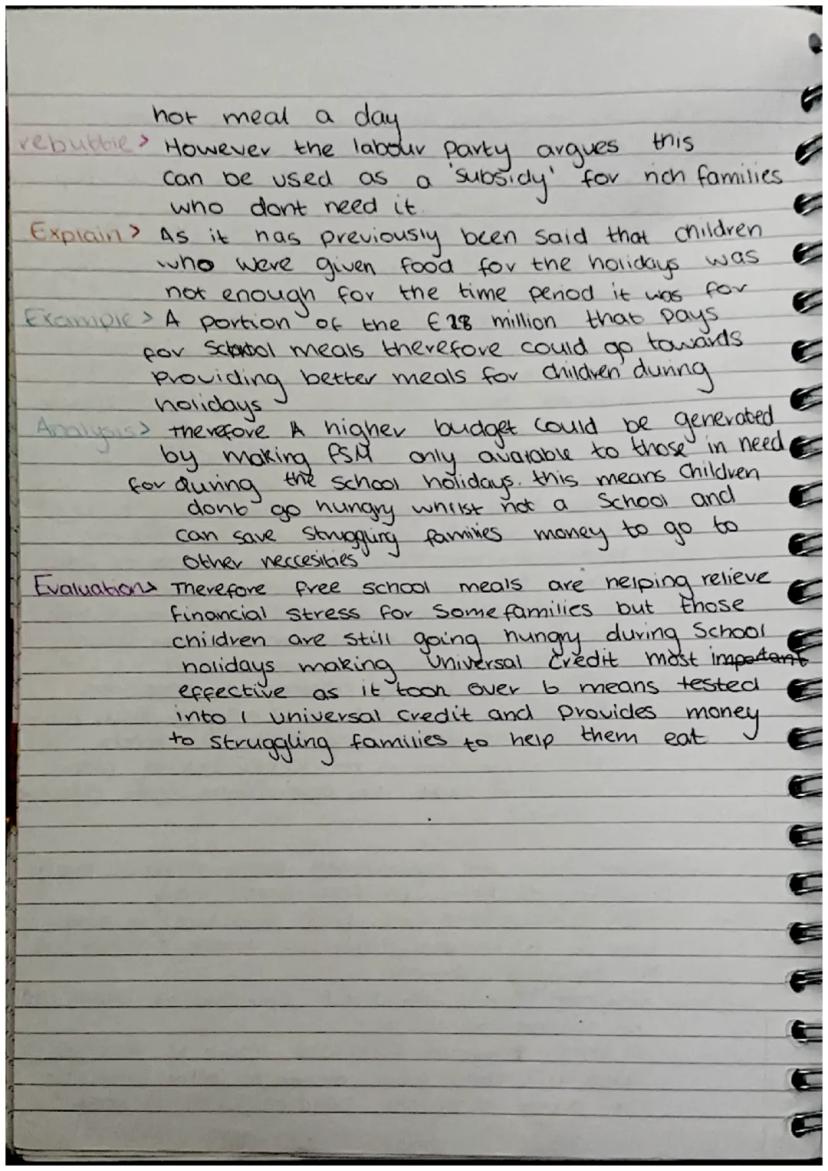 hot meal a day
rebuttle > However the labour party argues this
can be used as a 'subsidy' for rich families
who dont need it
Explain > As it has previously been said that children
who were given food for the holidays was
not enough for the time period it was for
Example > A portion of the £28 million that pays
for School meals therefore could go towards
Providing better meals for children during
holidays
Analysis > therefore A higher budget could be generated
by making FSM only available to those in need
for during the school holidays. this means Children
dont go hungry whilst not a School and
can save struggling families money to go to
other neccesities
Evaluation > Therefore free school meals are helping relieve
financial stress for some families but those
children are still going hungry during School
holidays making Universal Credit most important
effective as it took over 6 means tested
into 1 universal credit and provides money
to struggling families to help them eat